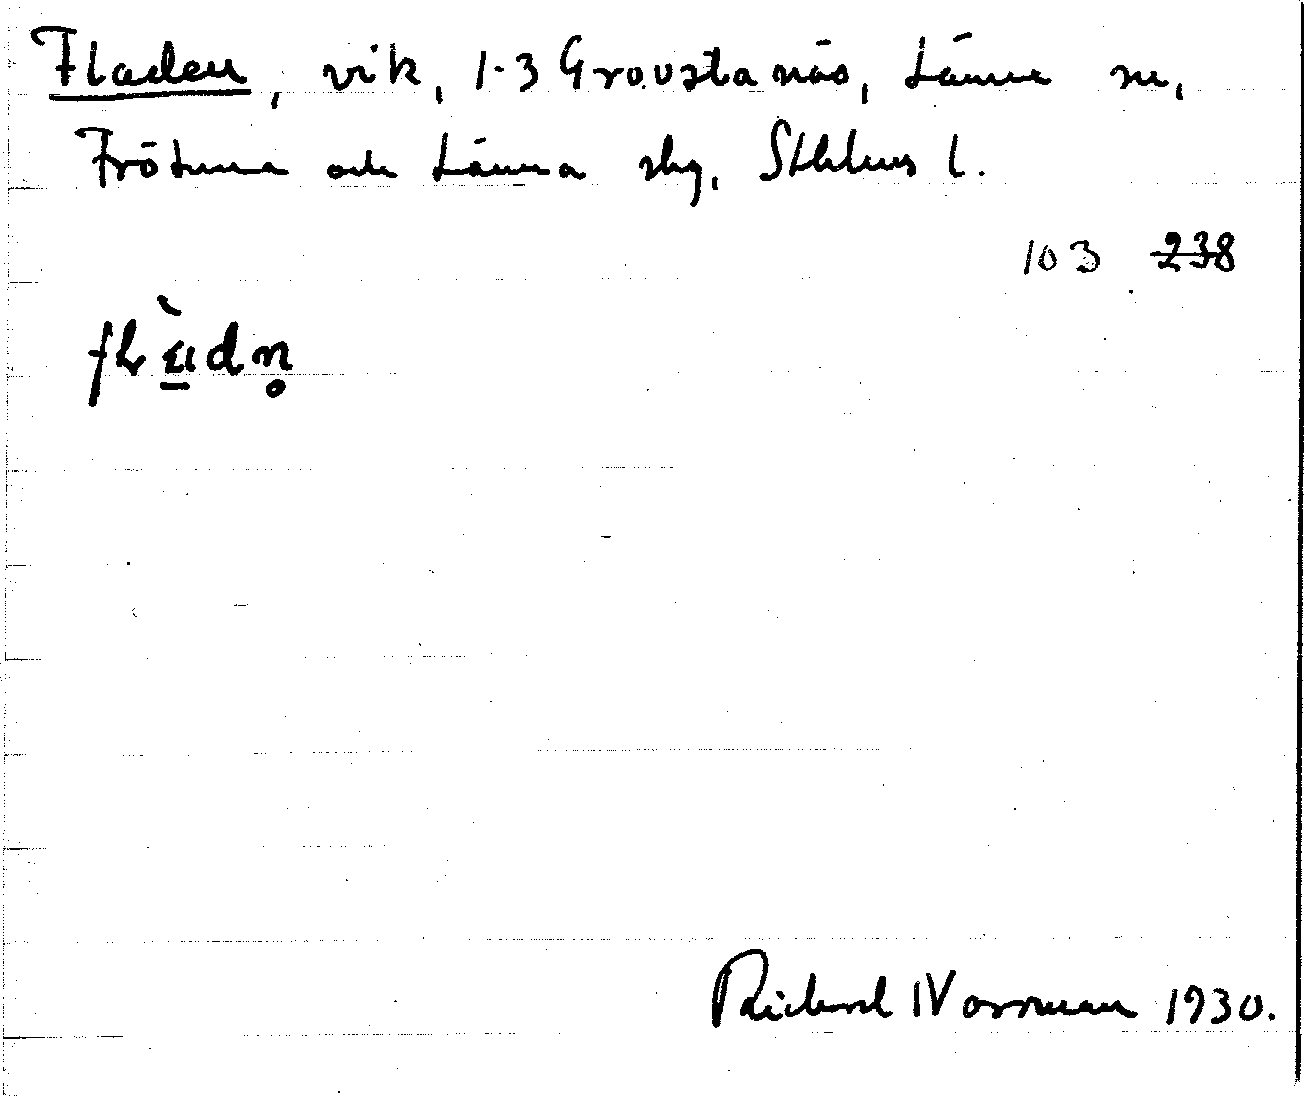 Fladen, vik, 1-3 Grovstanäs, Länna sn,
Frötuna och Länna skg, Sthlms l.
103 238
Richard Norrman 1930.